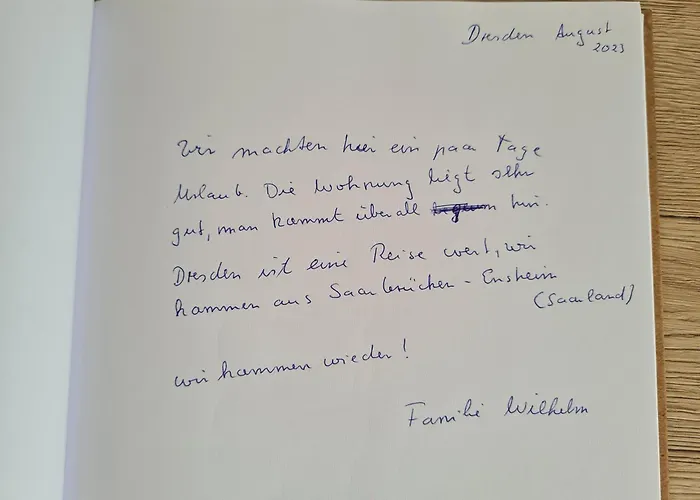 Dresden August
2023
Wir machten hier ein paar Tage
Urlaub. Die Wohnung liegt sehr
gut, man kommt überall hin.
Dresden ist eine Reise wert, wir
kommen aus Saarbrücken - Ensheim
(Saarland)
wir kommen wieder!
Familie Wilhelm